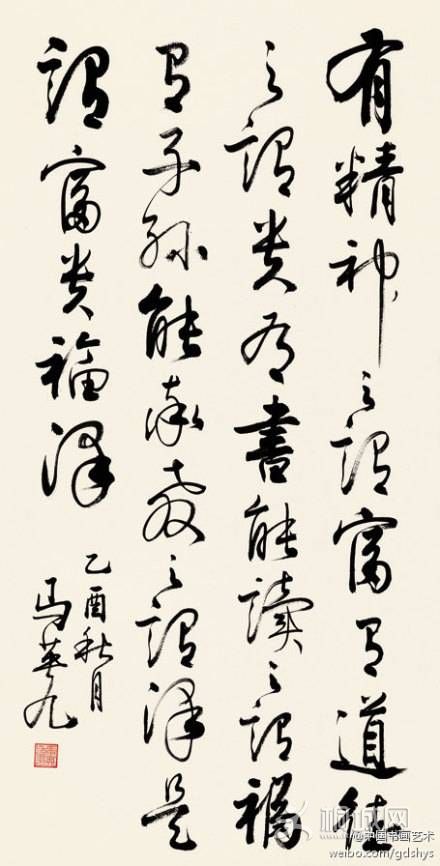 有精神之謂富有道德
之謂貴有書能讀之謂福
有子孫能承教之謂澤是
謂富貴福澤
乙酉秋月
馬英九
桐城网
@中国书画艺术
weibo.com/gdshys